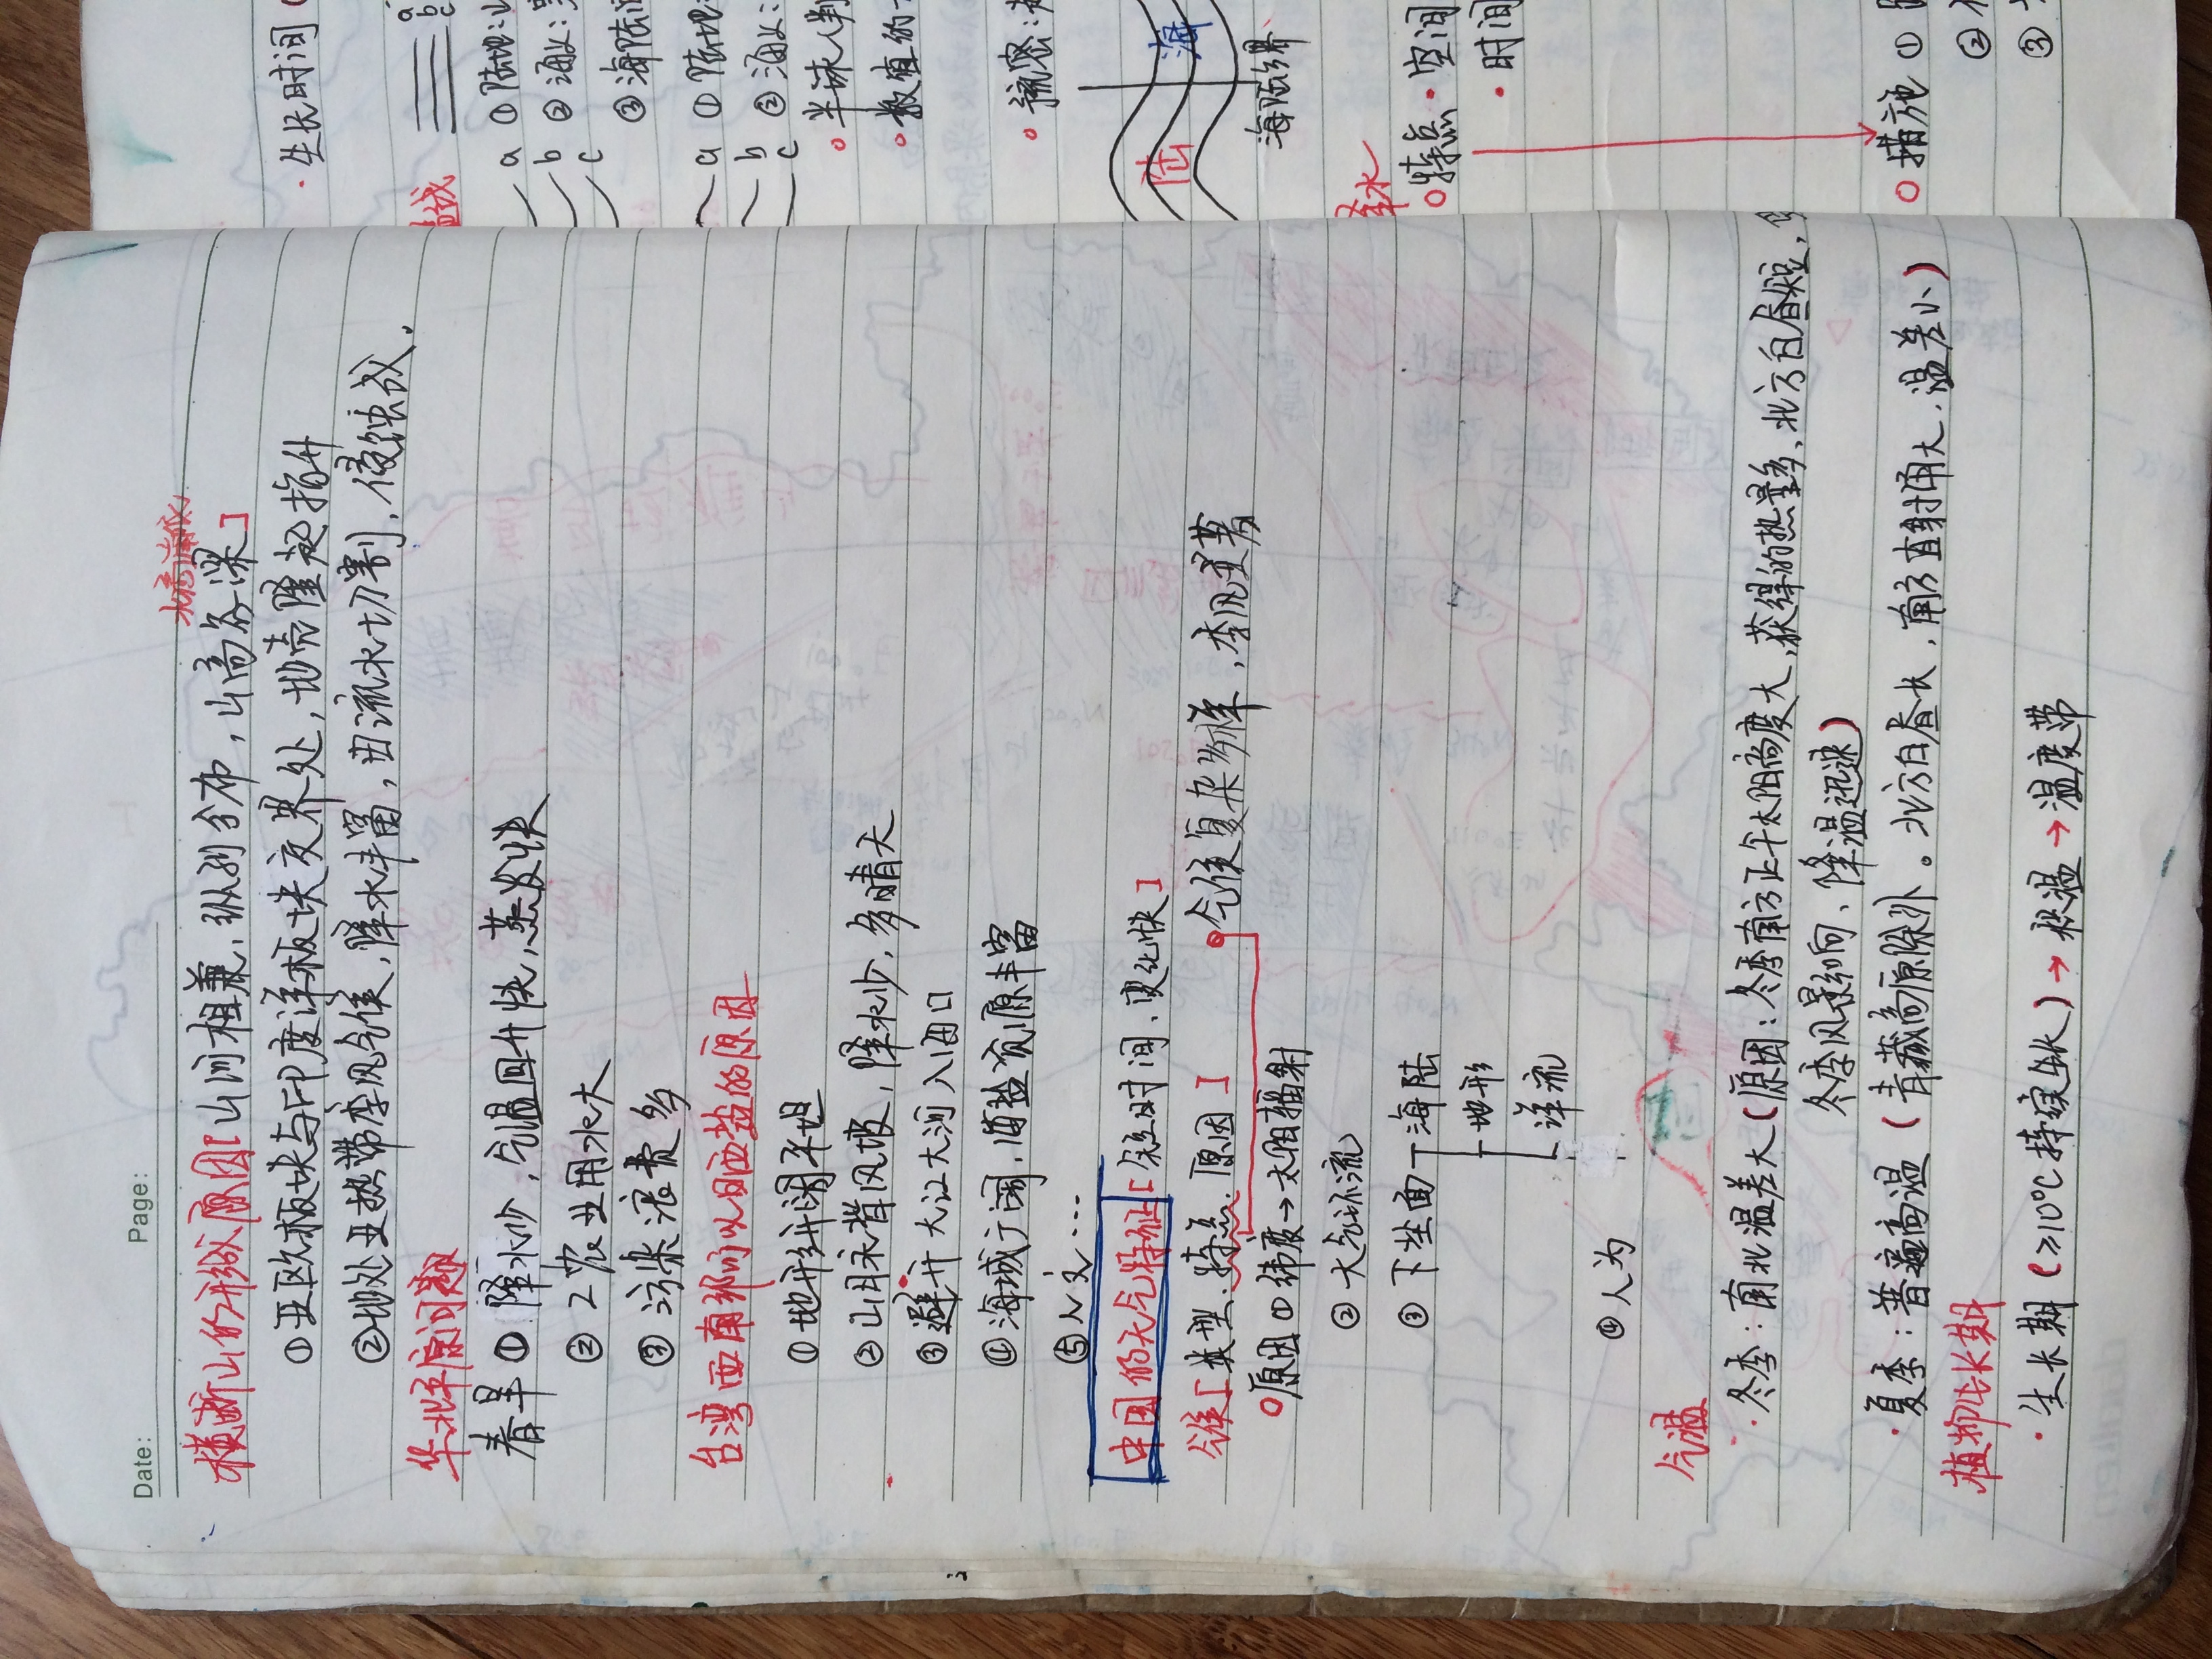 Date: Page:
横断山的形成原因[山河相兼,纵列分布,山高谷深]
①亚欧板块与印度洋板块交界处,地壳隆起抬升
②地处亚热带季风气候,降水丰富,由流水切割,侵蚀成.
华北平原问题
春旱①降水少,气温回升快,蒸发快
②工农业用水大
③污染浪费多
台湾西南部可以日晒盐的原因
①地形开阔平坦
②山脉背风坡,降水少,多晴天
③避开大江大河入海口
④海域广阔,海盐资源丰富
⑤人文…
中国的天气特征[短时间、变化快]
气候[类型、特点、原因] 气候复杂多样,季风显著
原因①纬度→太阳辐射
②大气环流
③下垫面 海陆
地形
洋流
④人为
气温
·冬季:南北温差大(原因:冬季南方正午太阳高度大,获得的热量多、北方白昼短,
冬季风影响、降温迅速)
·夏季:普遍高温(青藏高原除外。北方白昼长,南方直射角大,温差小)
植物生长期
·生长期(≥10℃持续生长)→积温→温度带
·生长时间
a
b
c
a ①陆地:山
b ②海义:
c
③海陆
a ①陆地
b ②海义:
c
半球(判
数值的
疏密:
陆 海
海陆分界
降水
特点·空间
·时间
措施①
②
③